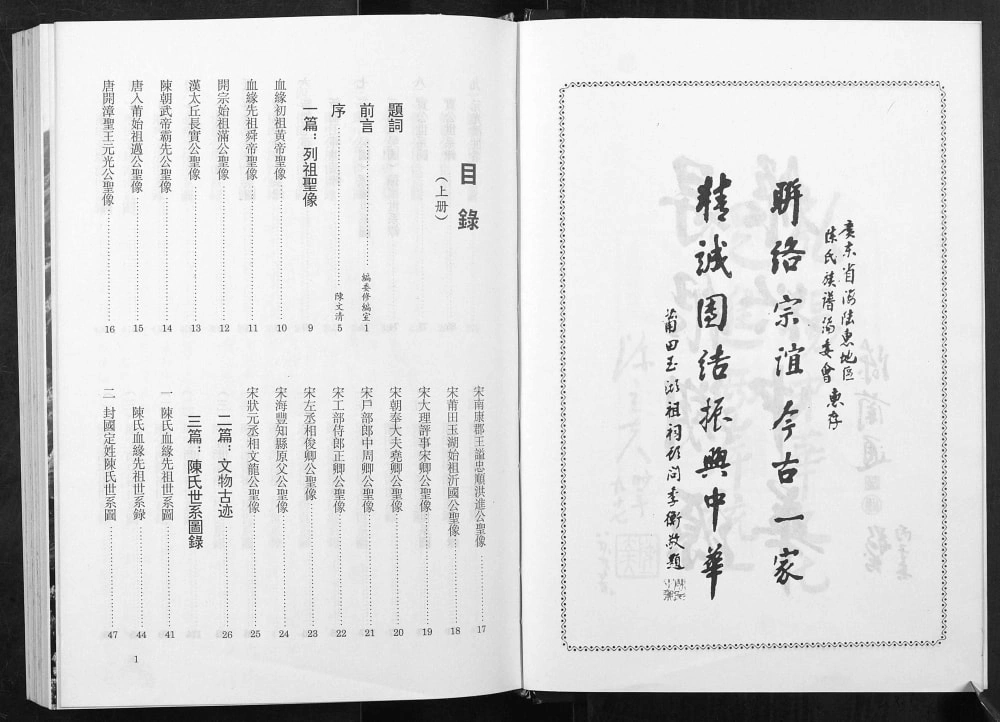 廣东省海陆惠地區
陈氏族譜编委會惠存
聨络宗谊今古一家
精诚團结振興中華
莆田玉湖祖祠顾问李衡敬題
目錄
（上册）
題詞
前言 編委修編室 1
序 陳文清 5
一篇：列祖聖像 9
血緣初祖黄帝聖像 10
血緣先祖舜帝聖像 11
開宗始祖滿公聖像 12
漢太丘長實公聖像 13
陳朝武帝霸先公聖像 14
唐入莆始祖邁公聖像 15
唐開漳聖王元光公聖像 16
宋南康郡王謚忠順洪進公聖像 17
宋莆田玉湖始祖沂國公聖像 18
宋大理評事宋卿公聖像 19
宋朝奉大夫堯卿公聖像 20
宋户部郎中周卿公聖像 21
宋工部侍郎正卿公聖像 22
宋左丞相俊卿公聖像 23
宋海豐知縣原父公聖像 24
宋狀元丞相文龍公聖像 25
二篇：文物古迹 26
三篇：陳氏世系圖錄
一 陳氏血緣先祖世系圖 41
陳氏血緣先祖世系錄 44
二 封國定姓陳氏世系圖 47
1